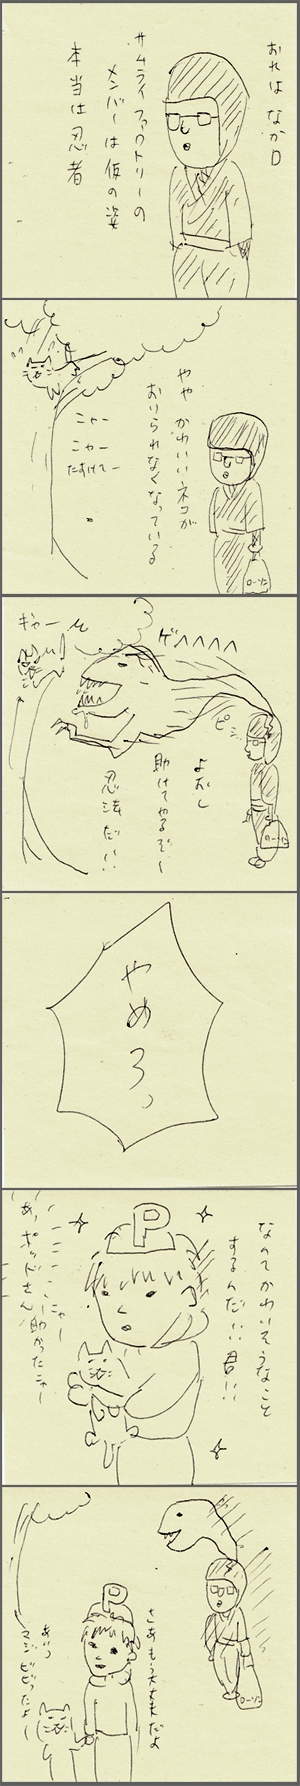 おれは なかD
サムライファクトリーの
メンバーは仮の姿
本当は忍者
やや かわいいネコが
おりられなくなっている
こゃー
こゃー
たすけてー
ローソン
ギャー
ゲへへへへ
ピシ
よおし
助けてやるぞ〜
忍法だ!!
ローソン
やめろっ
なんてかわいそうなこと
するんだ!!君!!
P
にゃー
あっポッドさん
助かったニャー
ローソン
P
さあもう大丈夫だよ
あいつ
マジビビったよ〜